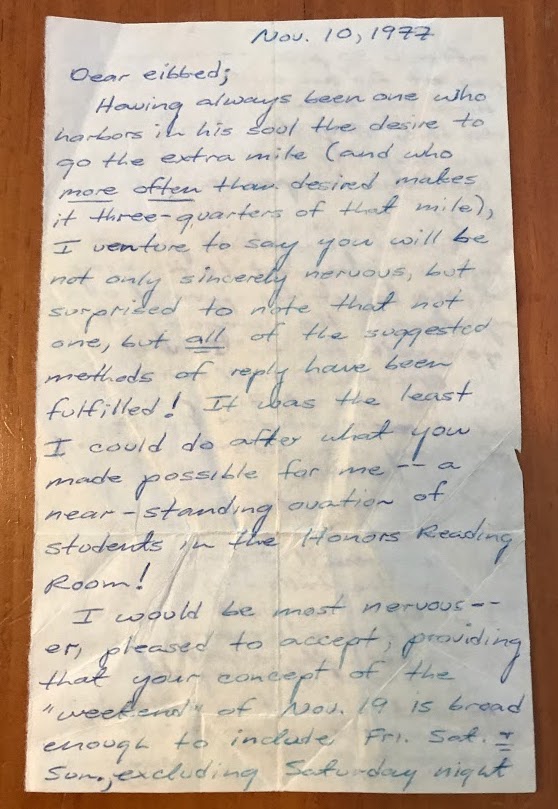 Nov. 10, 1977
Dear eibbed;
Having always been one who
harbors in his soul the desire to
go the extra mile (and who
more often than desired makes
it three-quarters of that mile),
I venture to say you will be
not only sincerely nervous, but
surprised to note that not
one, but all of the suggested
methods of reply have been
fulfilled! It was the least
I could do after what you
made possible for me -- a
near-standing ovation of
students in the Honors Reading
Room!
I would be most nervous --
er, pleased to accept, providing
that your concept of the
"weekend" of Nov. 19 is broad
enough to include Fri. Sat. +
Sun., excluding Saturday night